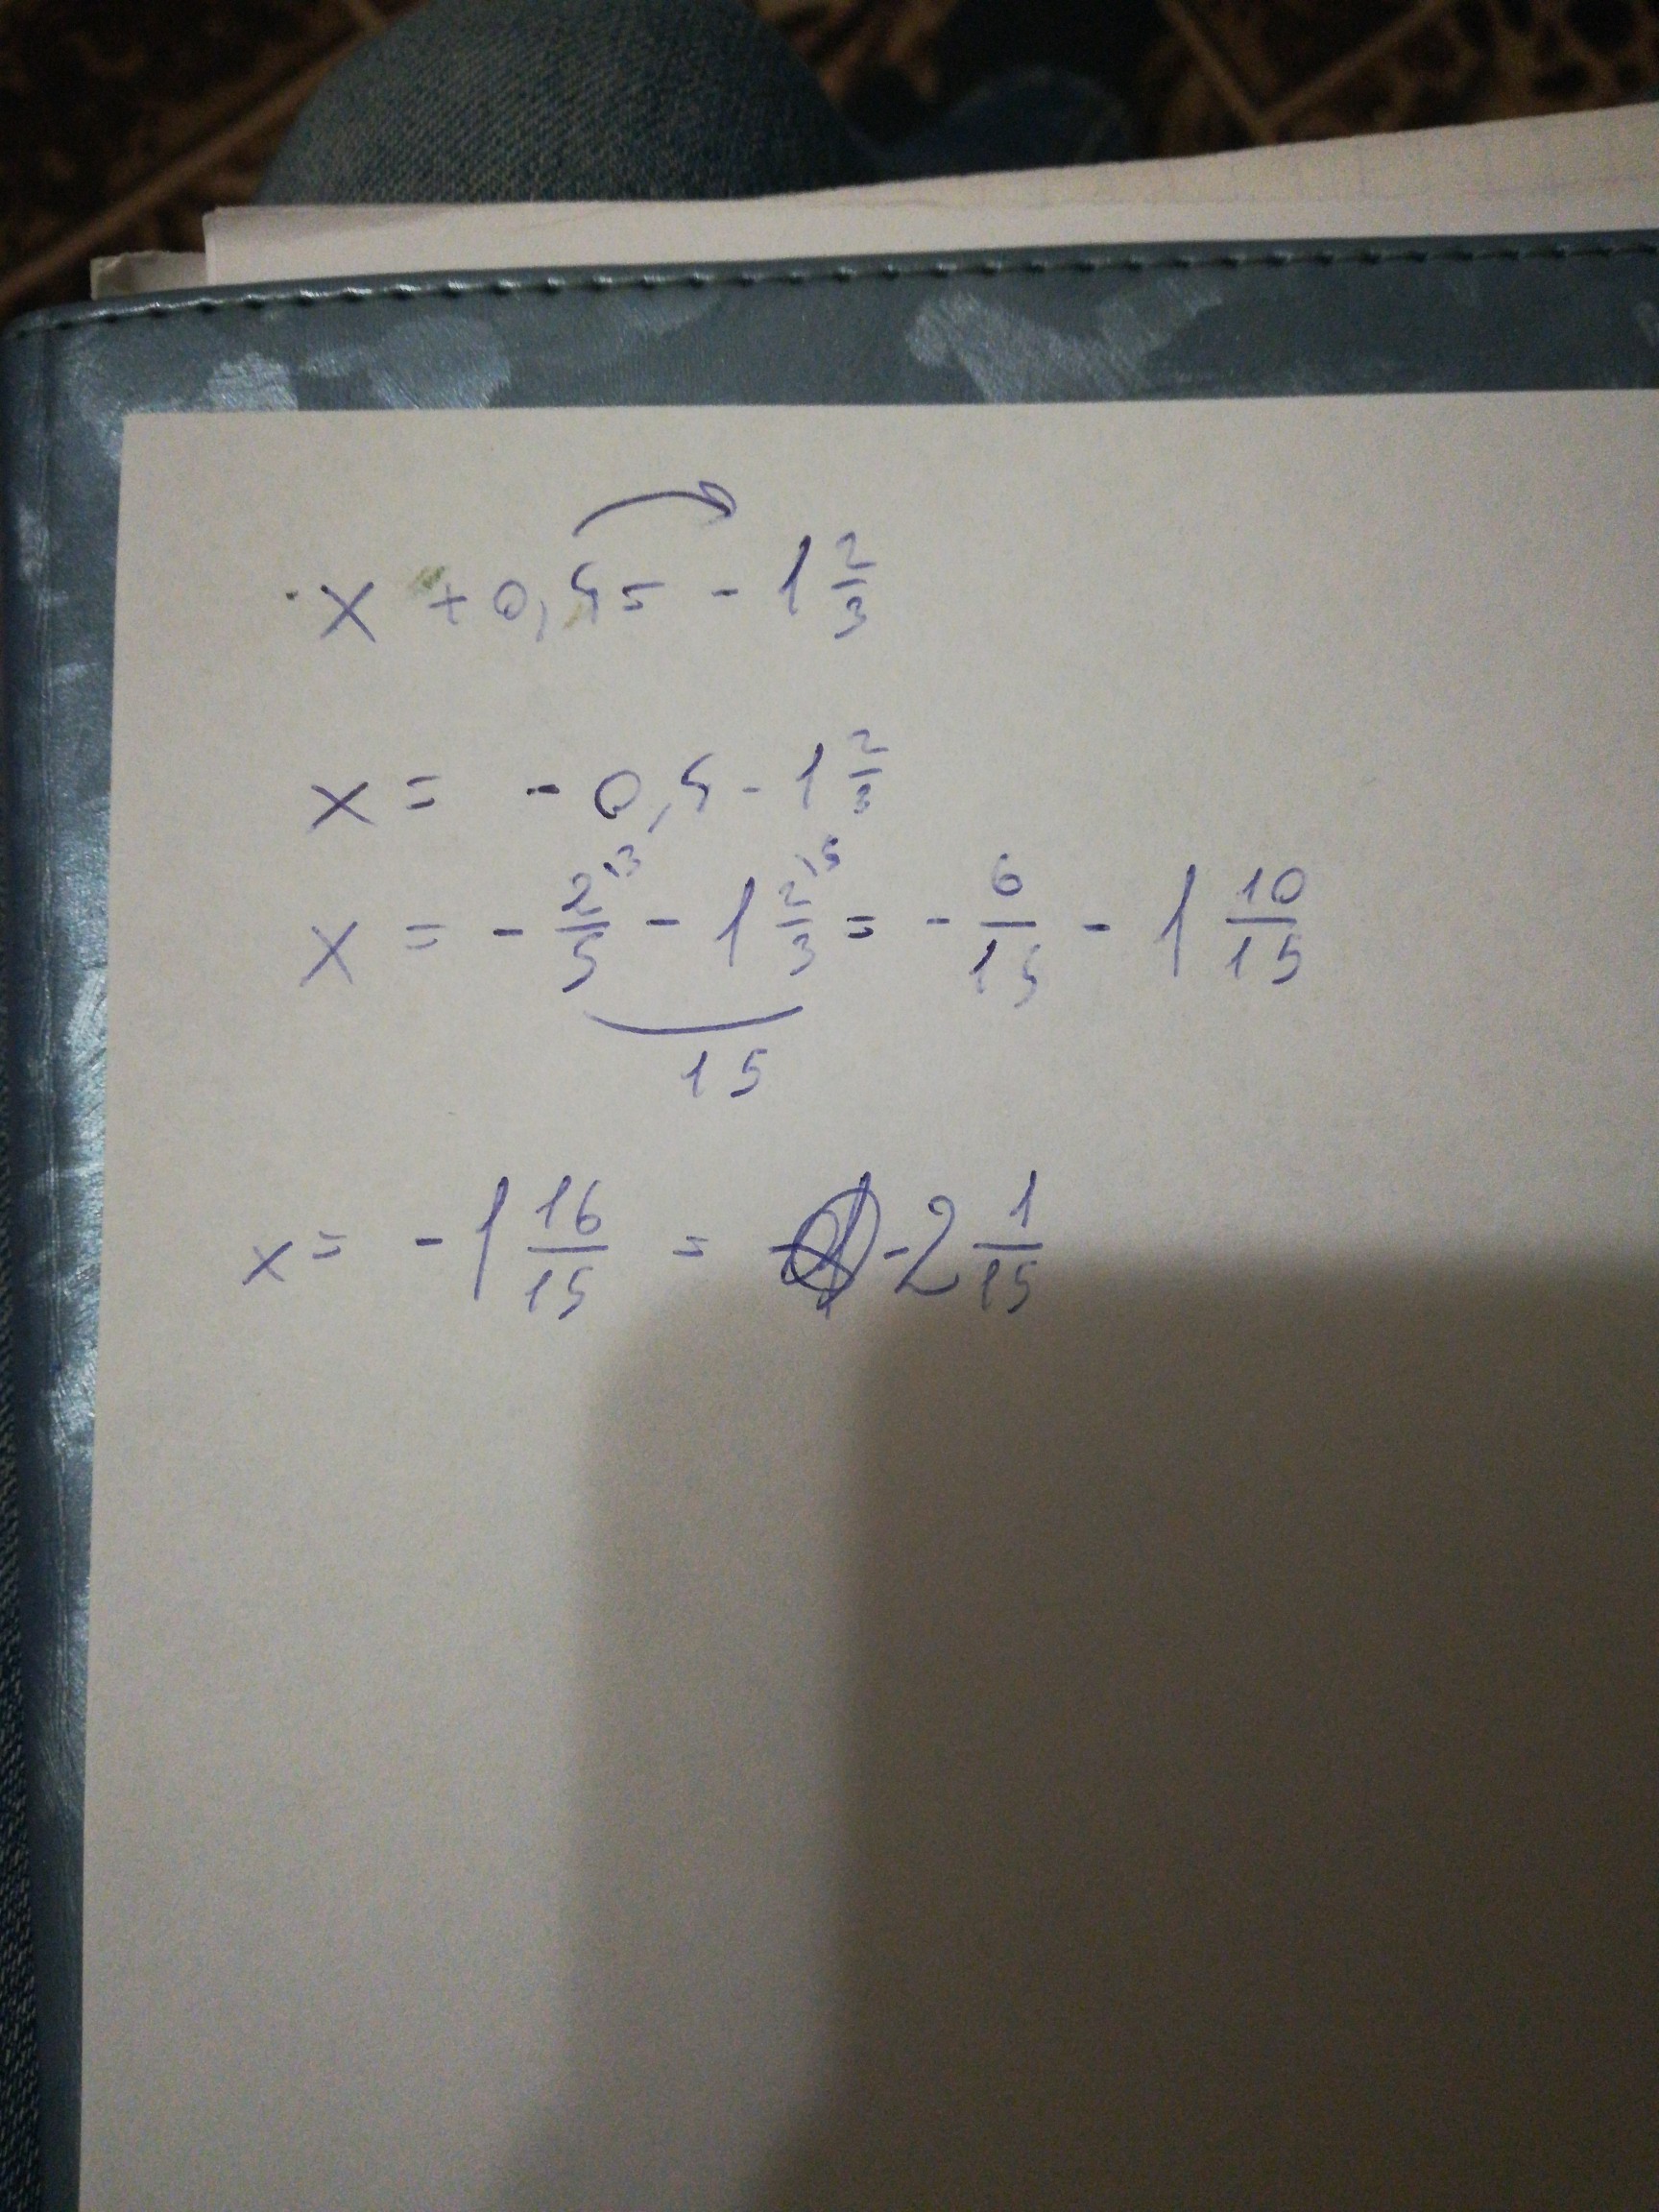 x + 0,4 = - 1 2/3
x = - 0,4 - 1 2/3
x = - 2/5 \3 - 1 2/3 \5 = - 6/15 - 1 10/15
15
x = - 1 16/15 = - 2 1/15